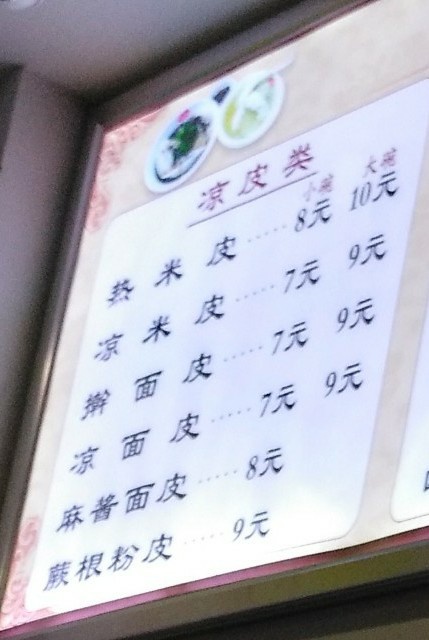 凉皮类
小碗 大碗
热米皮 ····· 8元 10元
凉米皮 ····· 7元 9元
擀面皮 ····· 7元 9元
凉面皮 ····· 7元 9元
麻酱面皮 ····· 8元
蕨根粉皮 ····· 9元